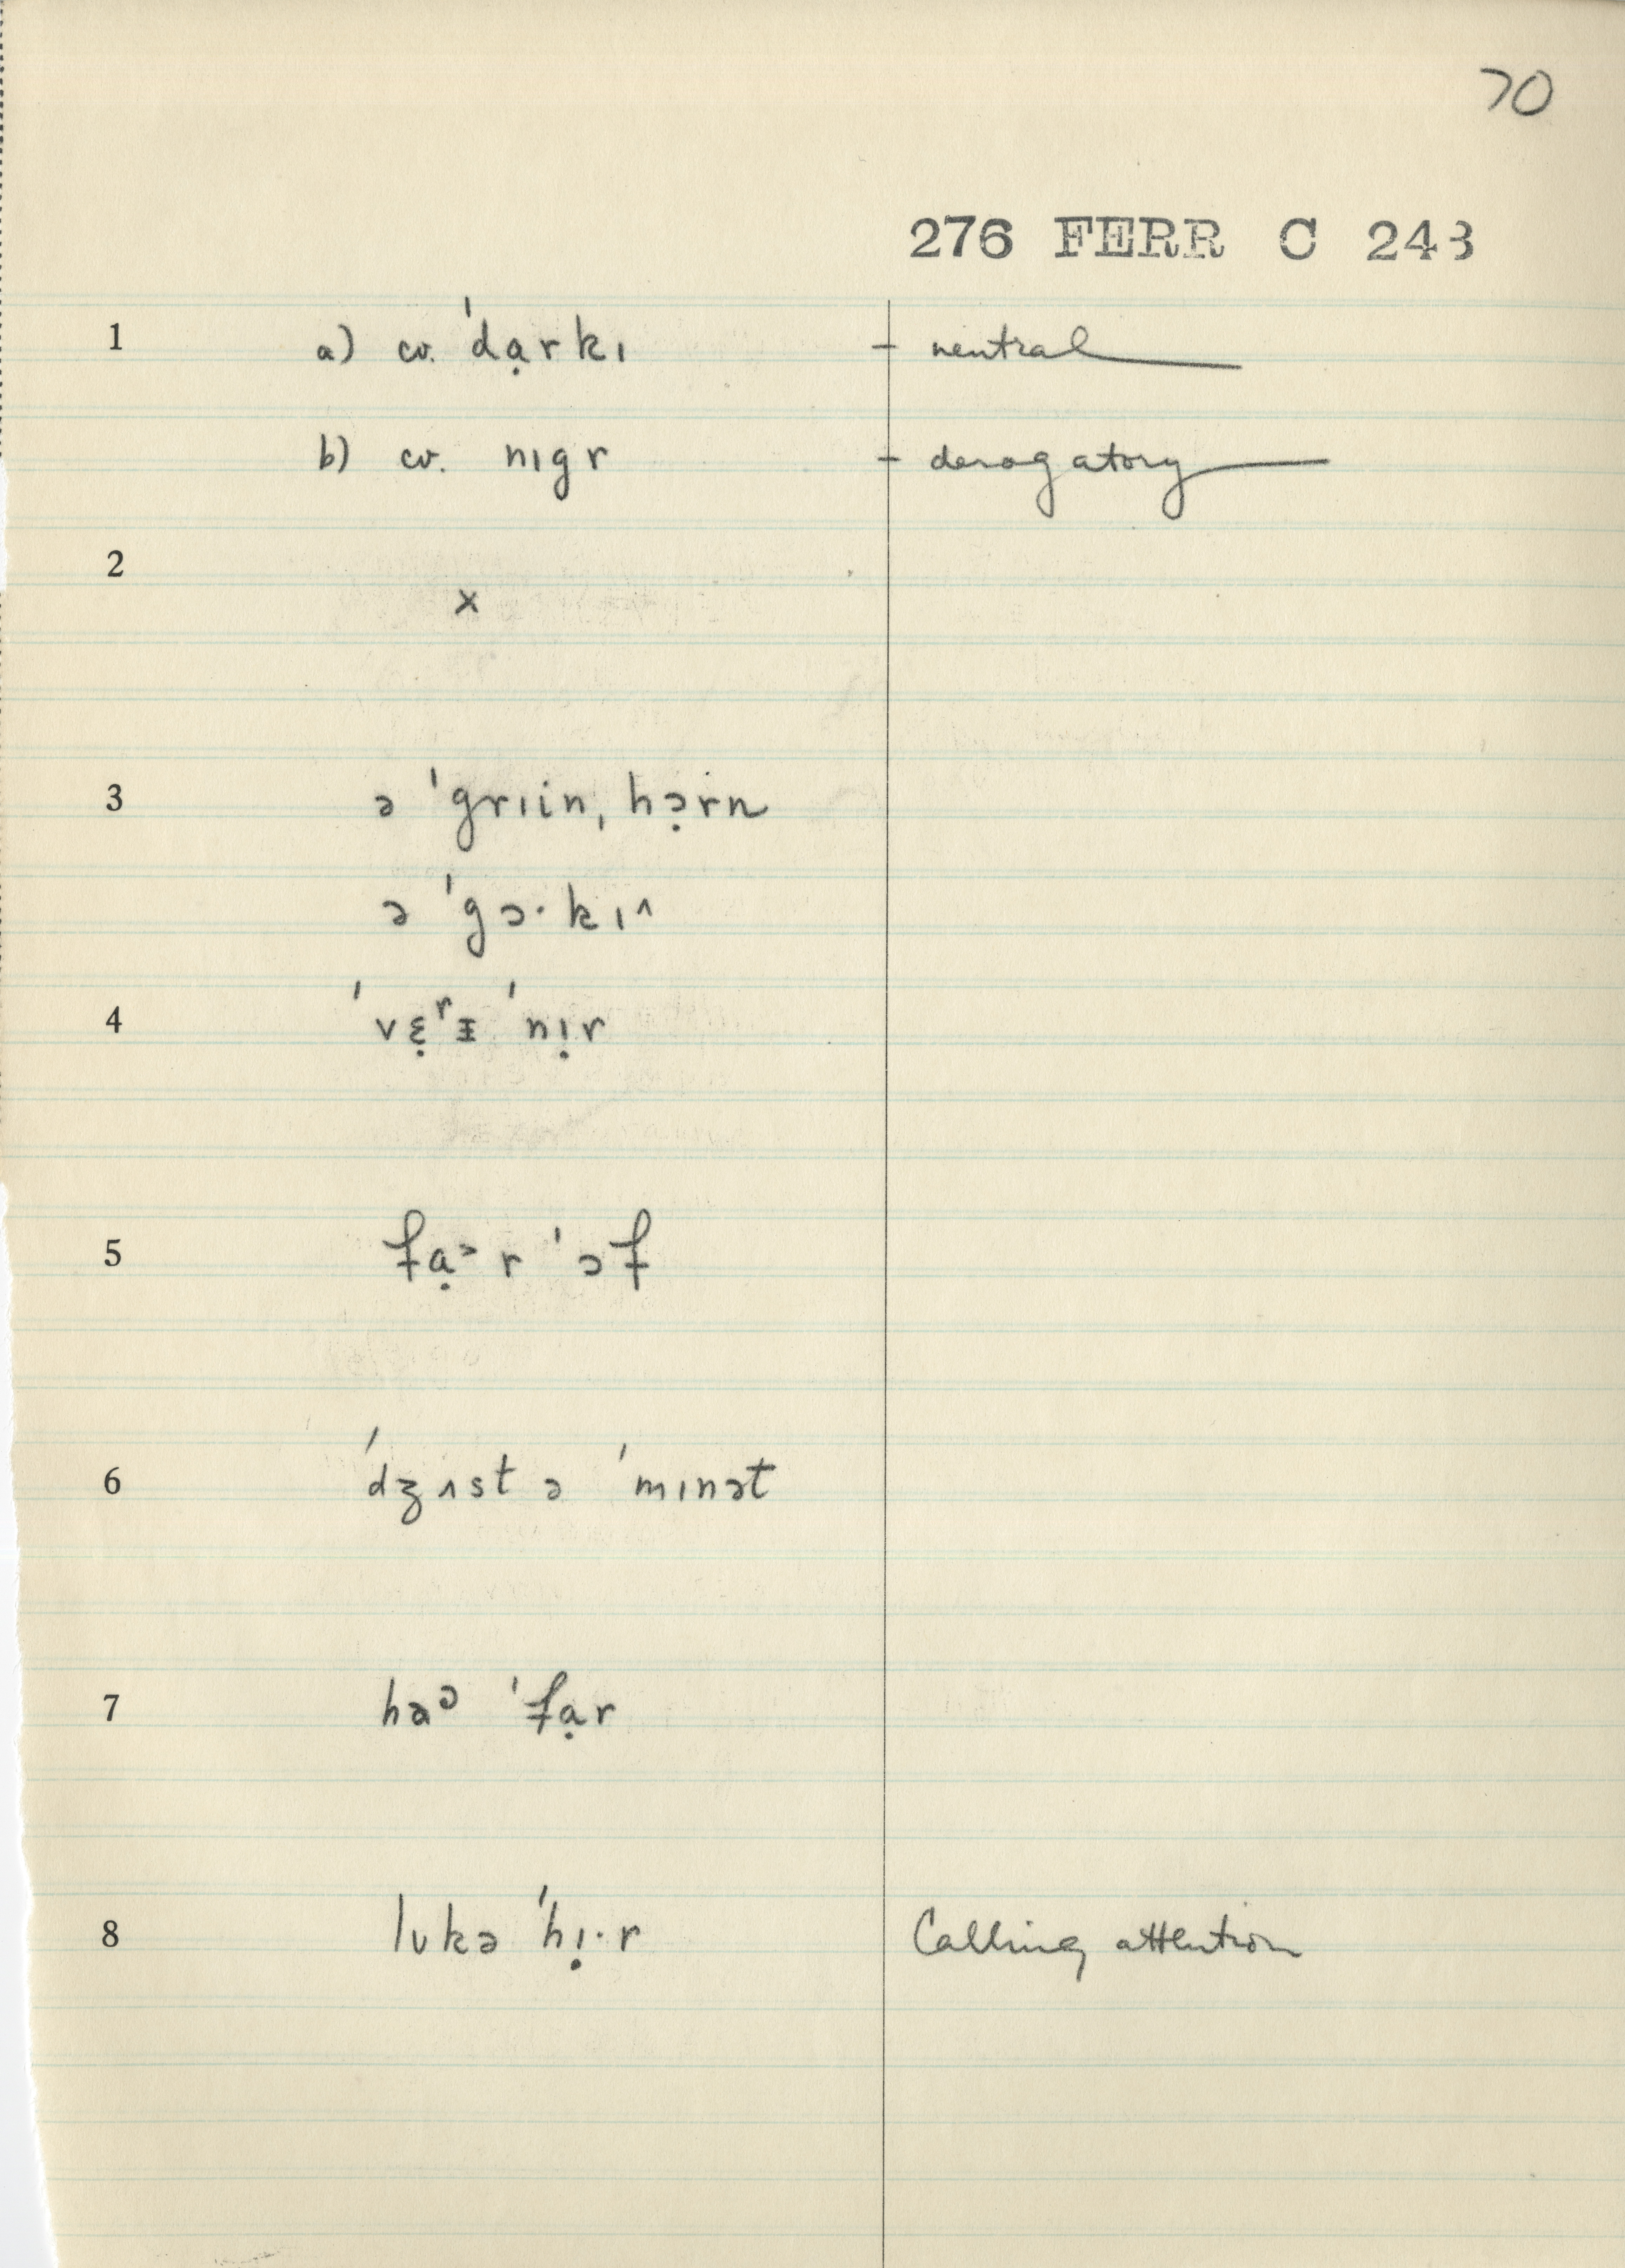 70
276 FERR C 243
1 a) cv. 'dạrkɪ - neutral
b) cv. nɪgr - derogatory
2 x
3 ə 'grɪin, hɔ̣rn
ə 'gɔ·kɪ^
4 'vɛ̣ʳɪ 'nɪ̣r
5 fạ˃r 'ɔf
6 'dʒʌst ə 'mɪnət
7 haᵓ 'fạr
8 lʊkə 'hɪ̣·r Calling attention